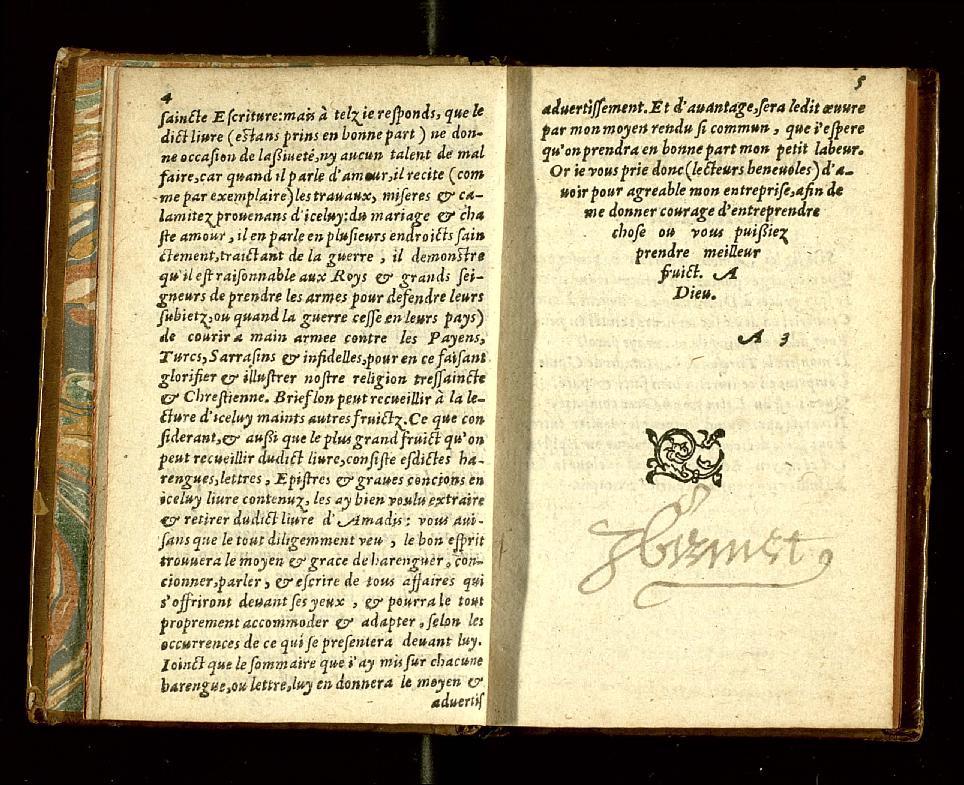 4
saincte Escriture: mais à telz ie responds, que le
dict liure (estans prins en bonne part) ne don-
ne occasion de lasiueté, ny aucun talent de mal
faire, car quand il parle d'amour, il recite (com
me par exemplaire) les trauaux, miseres & ca-
lamitez prouenans d'iceluy: du mariage & cha
ste amour, il en parle en plusieurs endroicts sain
ctement, traictant de la guerre, il demonstre
qu'il est raisonnable aux Roys & grands sei-
gneurs de prendre les armes pour defendre leurs
subietz, ou quand la guerre cesse en leurs pays)
de courir a main armee contre les Payens,
Turcs, Sarrasins & infidelles, pour en ce faisant
glorifier & illustrer nostre religion tressaincte
& Chrestienne. Brief lon peut recueillir à la le-
cture d'iceluy maints autres fruictz. Ce que con
siderant, & aussi que le plus grand fruict qu'on
peut recueillir dudict liure, consiste esdictes ha-
rengues, lettres, Epistres & graues concions en
iceluy liure contenuz, les ay bien voulu extraire
& retirer dudict liure d'Amadis: vous aui-
sans que le tout diligemment veu, le bon esprit
trouuera le moyen & grace de harenguer, con-
cionner, parler, & escrire de tous affaires qui
s'offriront deuant ses yeux, & pourra le tout
proprement accommoder & adapter, selon les
occurrences de ce qui se presentera deuant luy.
Ioinct que le sommaire que i'ay mis sur chacune
harengue, ou lettre, luy en donnera le moyen &
aduertis
5
aduertissement. Et d'auantage, sera ledit œuure
par mon moyen rendu si commun, que i'espere
qu'on prendra en bonne part mon petit labeur.
Or ie vous prie donc (lecteurs beneuoles) d'a-
uoir pour agreable mon entreprise, afin de
me donner courage d'entreprendre
chose ou vous puissiez
prendre meilleur
fruict. A
Dieu.
A 3